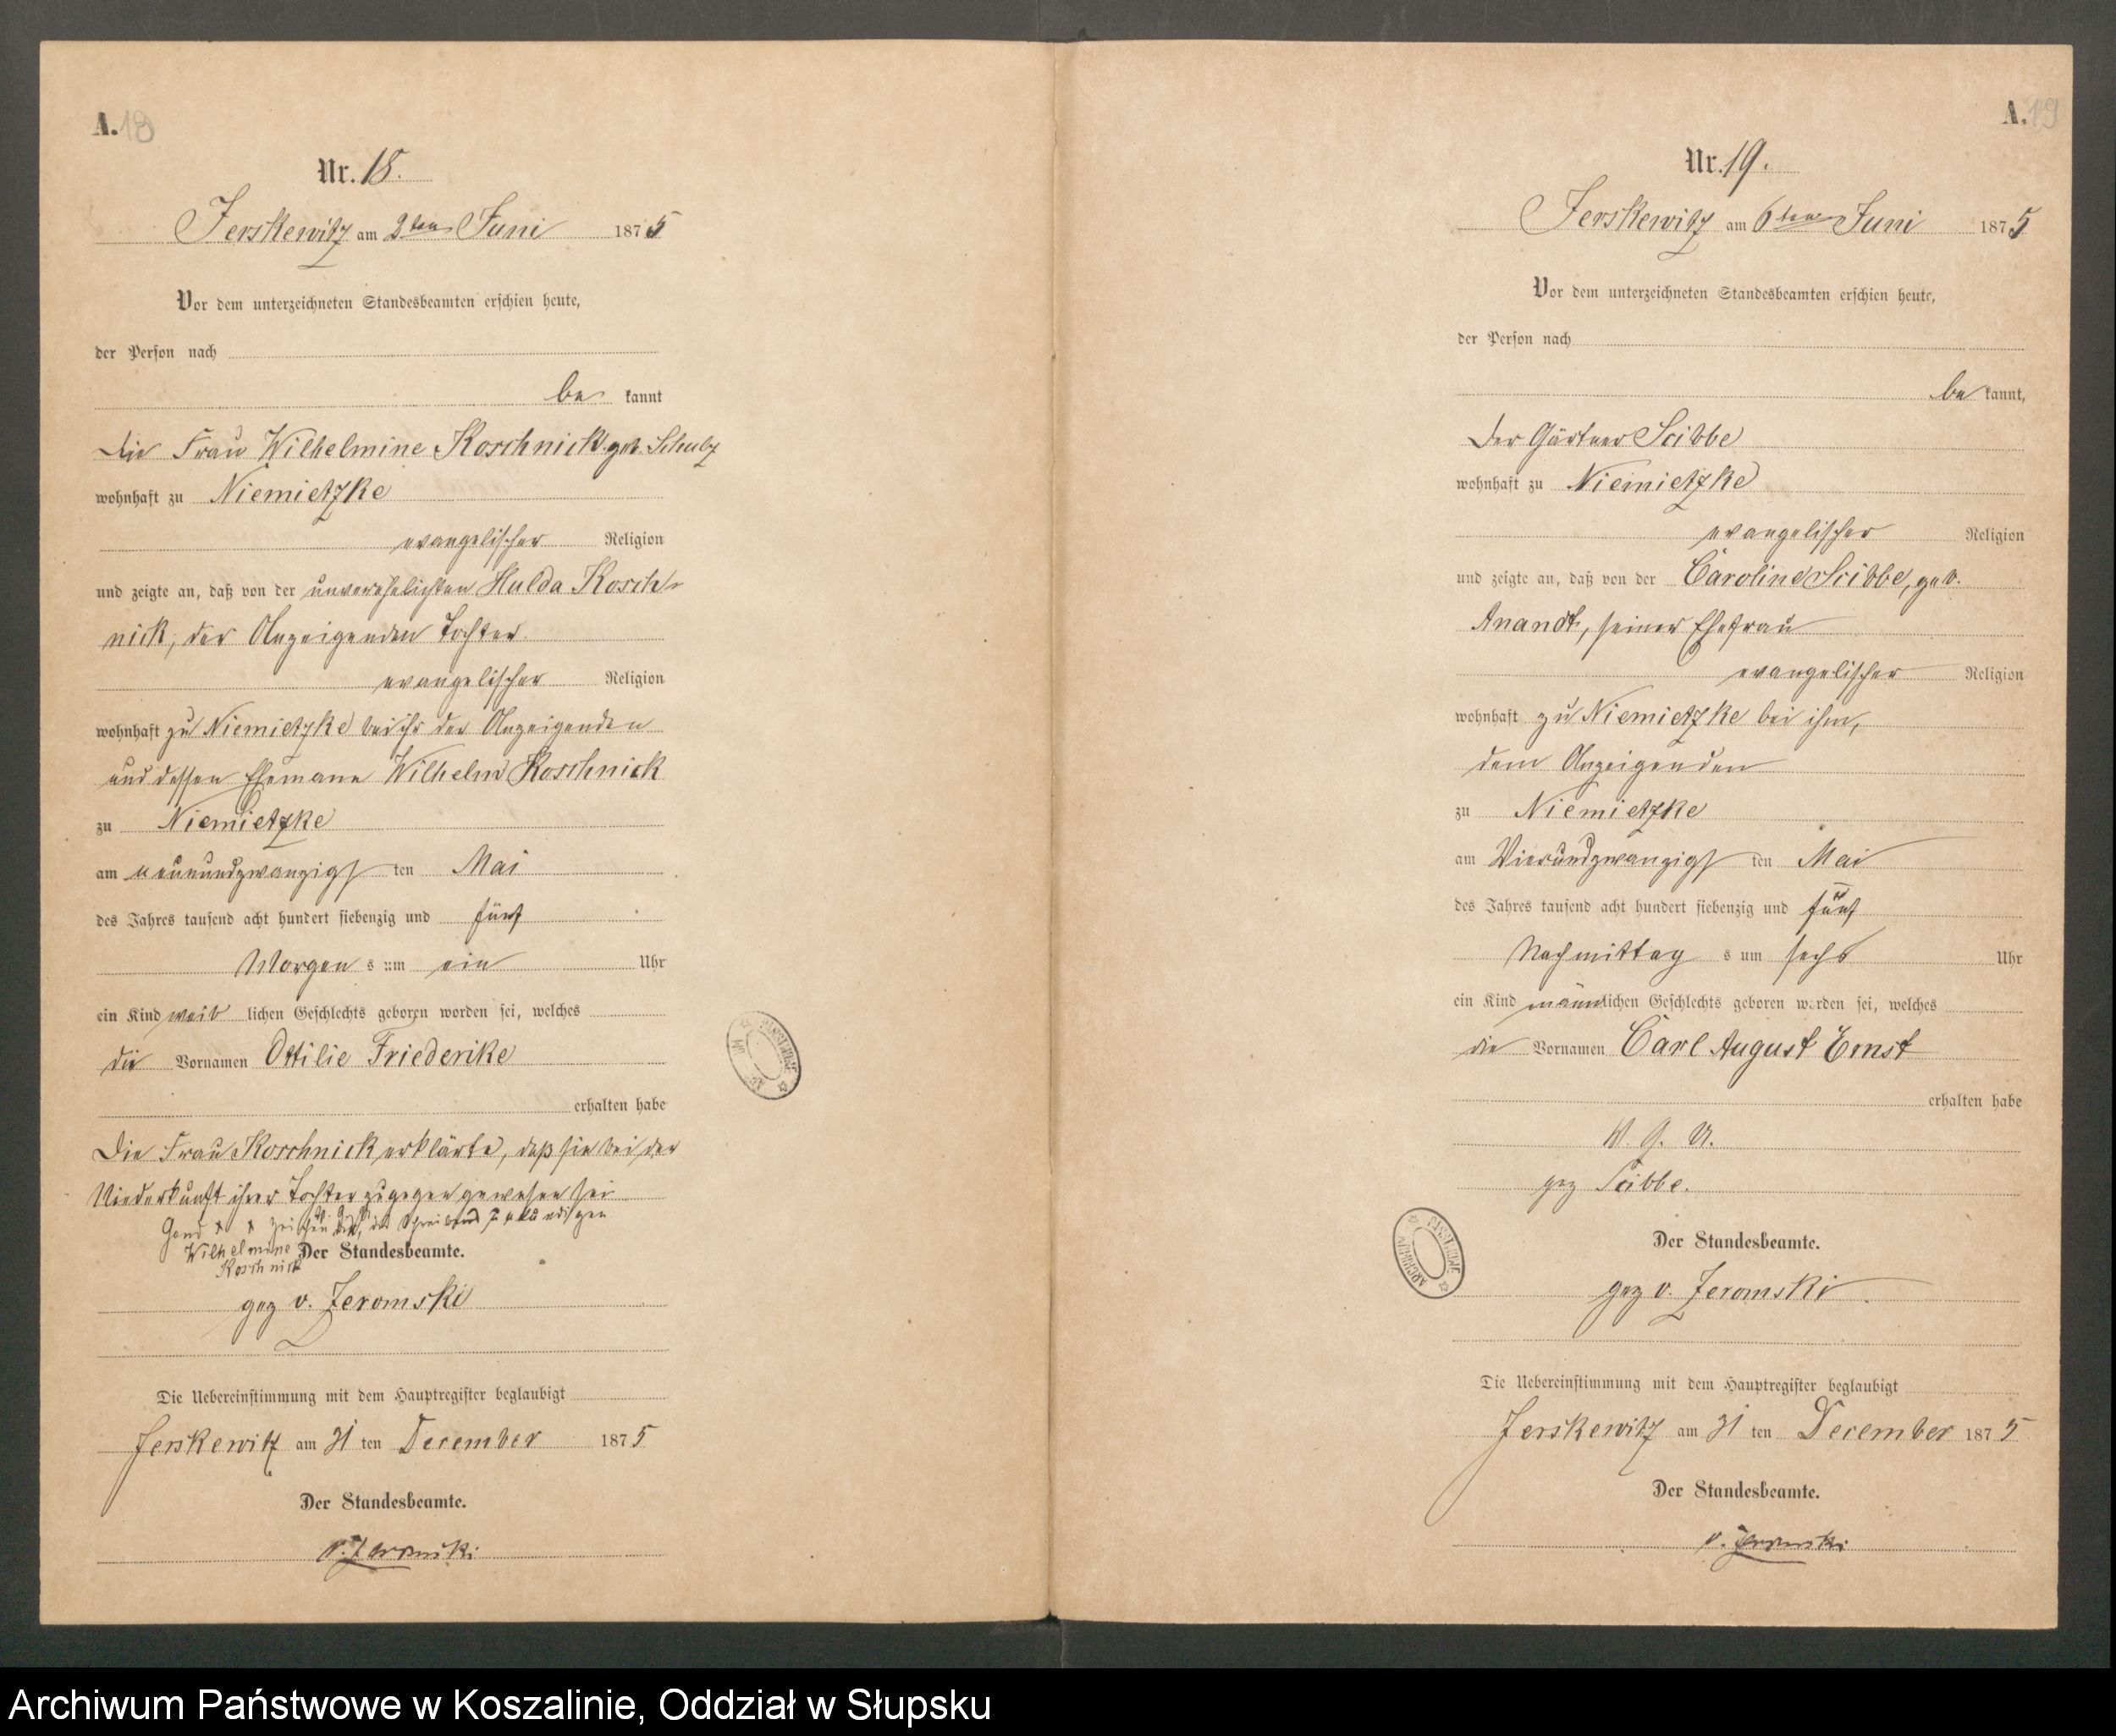 A. 18
Nr. 18.
Jerskewitz am 2ten Juni 1875
Vor dem unterzeichneten Standesbeamten erschien heute,
der Person nach
be kannt
die Frau Wilhelmine Koschnick geb. Schulz
wohnhaft zu Niemietzke
evangelischer Religion
und zeigte an, daß von der unverehelichten Hulda Kosch-
nick, der Anzeigenden Tochter
evangelischer Religion
wohnhaft zu Niemietzke bei ihr der Anzeigenden
und dessen Ehemann Wilhelm Koschnick
zu Niemietzke
am neunundzwanzigs ten Mai
des Jahres tausend acht hundert siebenzig und fünf
Morgen s um ein Uhr
ein Kind weib lichen Geschlechts geboren worden sei, welches
die Vornamen Ottilie Friederike
erhalten habe
Die Frau Koschnick erklärte, daß sie bei der
Niederkunft ihrer Tochter zugegen gewesen sei
Hand x x x zeichen der, des Schreibens
Wilhelmine
Koschnick
Der Standesbeamte.
gez v. Zeromski
Die Uebereinstimmung mit dem Hauptregister beglaubigt
Jerskewitz am 31 ten December 1875
Der Standesbeamte.
v. Zeromski
A. 19
Nr. 19.
Jerskewitz am 6ten Juni 1875
Vor dem unterzeichneten Standesbeamten erschien heute,
der Person nach
be kannt,
der Gärtner Scibbe
wohnhaft zu Niemietzke
evangelischer Religion
und zeigte an, daß von der Caroline Scibbe, geb.
Anandt, seiner Ehefrau
evangelischer Religion
wohnhaft zu Niemietzke bei ihm,
dem Anzeigenden
zu Niemietzke
am Vierundzwanzigs ten Mai
des Jahres tausend acht hundert siebenzig und fünf
Nachmittag s um sechs Uhr
ein Kind männlichen Geschlechts geboren worden sei, welches
die Vornamen Carl August Ernst
erhalten habe
V. G. U.
gez Scibbe.
Der Standesbeamte.
gez v. Zeromski
Die Uebereinstimmung mit dem Hauptregister beglaubigt
Jerskewitz am 31 ten December 1875
Der Standesbeamte.
v. Zeromski
Archiwum Państwowe w Koszalinie, Oddział w Słupsku